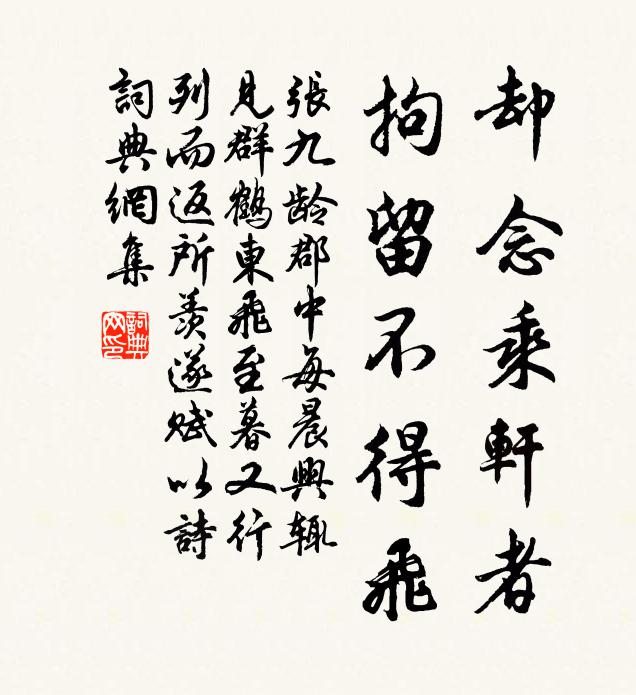 却念乘軒者
拘留不得飛
張九齡郡中每晨興輒
見群鶴東飛至暮又行
列而返所羨遂賦以詩
詞典網集
詞典网印